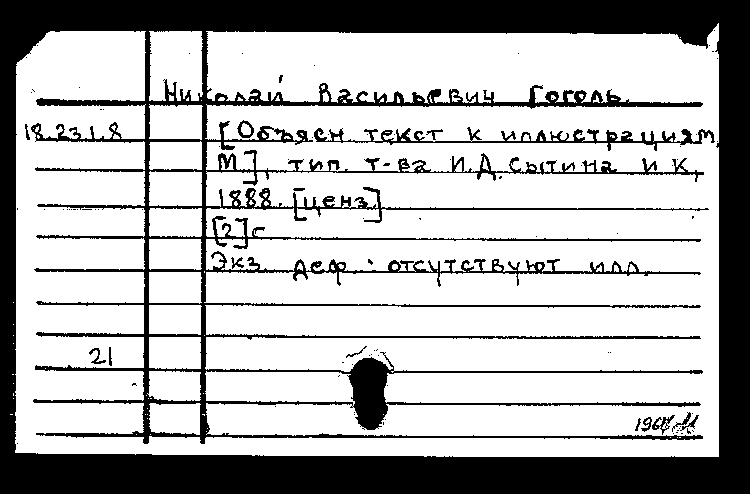 Николай Васильевич Гоголь.
18.23.1.8 [Объясн текст к иллюстрациям.
М], тип. т-ва И.Д.Сытина и К,
1888. [ценз]
[2]с
Экз. деф.: отсутствуют илл.
21